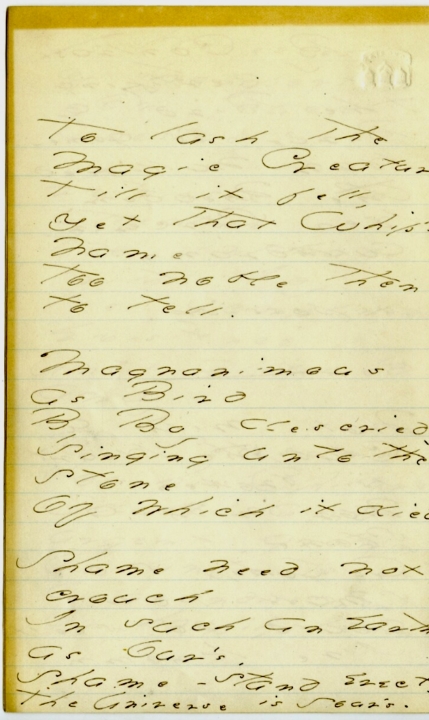 To lash the
Magic Creatur
Till it fell,
Yet that Whip's
name
Too noble then
to tell.
Magnanimous
as Bird
By Boy descried
Singing unto the
Stone
Of which it died
Shame need not
crouch
In such an Earth
as Our's.
Shame - stand Erect,
The Universe is Your's.